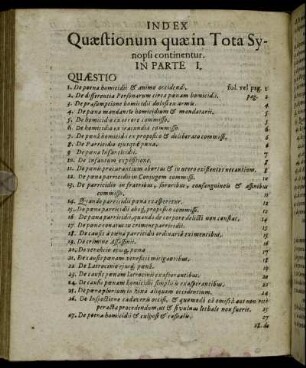 INDEX
Quæstionum quæ in Tota Sy-
nopsi continentur.
IN PARTE I.
QUÆSTIO
1. De pœna homicidii & animo occidendi, fol. vel pag. 1
2. De differentia Personarum circa pœnam homicidii. pag. 2
3. De præsumptione homicidii dolosi ex armis.
4. De pœna mandantis homicidium & mandatarii.
5. De homicidio ex errore commisso.
6. De homicidio ex iracundia commisso.
7. De pœna homicidii ex proposito & deliberato commissi.
8. De Parricidio ejusque pœna.
9. De pœna Infanticidii.
10. De infantium expositione.
11. De pœna procurantium abortus & in utero existentes necantium.
12. De pœna parricidii in Conjugem commissi.
13. De parricidio in fratribus, sororibus, consanguineis & affinibus
commisso.
14. Quando parricidii pœna exasperetur.
15. De pœna parricidii absque proposito commissi.
16. De pœna parricidii, quando de corpore delicti non constat.
17. De pœna conatus in crimine parricidii.
18. De causis à pœna parricidii ordinaria eximentibus.
19. De crimine Assassinii.
20. De veneficio ejusque pœna
21. De causis pœnam veneficii mitigantibus.
22. De Latrocinio ejusque pœna.
23. De causis pœnam latrocinii exasperantibus.
24. De causis pœnam homicidii simplicis exasperantibus.
25. De pœna plurium in rixa aliquem occidentium.
26. De Inspectione cadaveris occisi, & quomodo eâ omissâ aut non ritè
peracta procedendum, aut si vulnus lethale non fuerit.
27. De pœna homicidii & culposi & casualis.